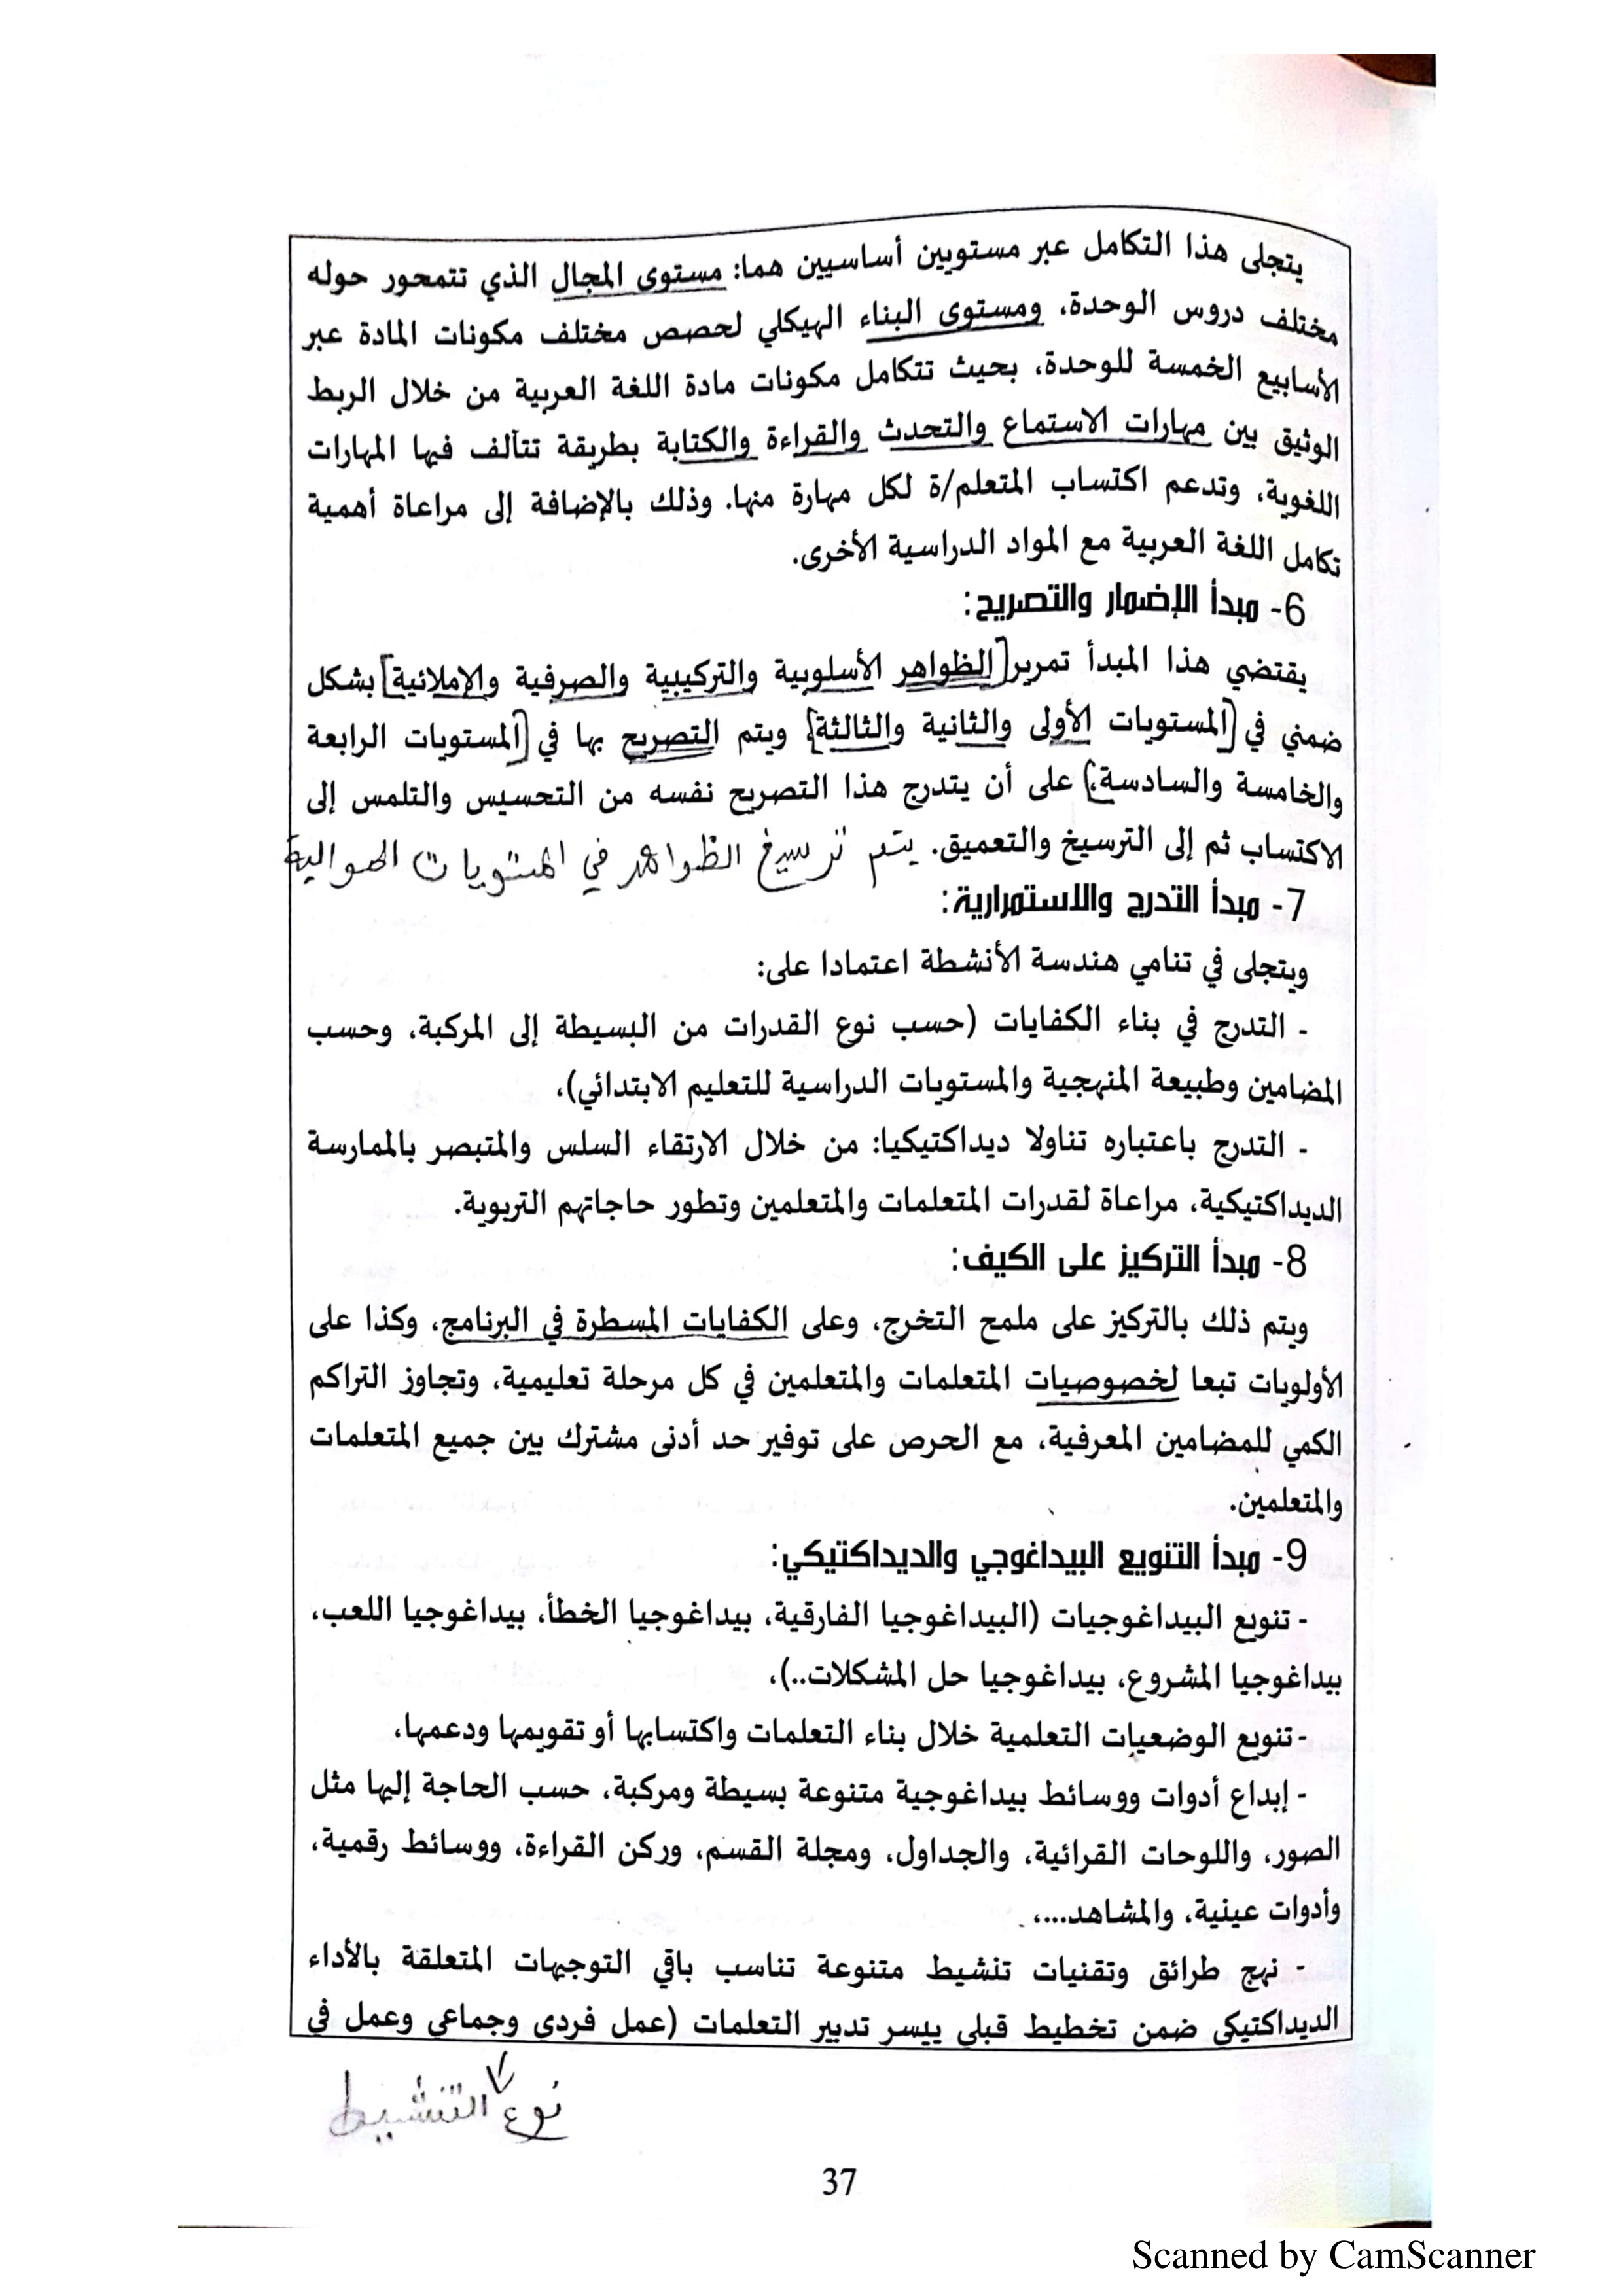 يتجلى هذا التكامل عبر مستويين أساسيين هما: مستوى المجال الذي تتمحور حوله
مختلف دروس الوحدة، ومستوى البناء الهيكلي لحصص مختلف مكونات المادة عبر
الأسابيع الخمسة للوحدة، بحيث تتكامل مكونات مادة اللغة العربية من خلال الربط
الوثيق بين مهارات الاستماع والتحدث والقراءة والكتابة بطريقة تتآلف فيها المهارات
اللغوية، وتدعم اكتساب المتعلم/ة لكل مهارة منها. وذلك بالإضافة إلى مراعاة أهمية
تكامل اللغة العربية مع المواد الدراسية الأخرى.
6- مبدأ الإضمار والتصريح:
يقتضي هذا المبدأ تمرير [الظواهر الأسلوبية والتركيبية والصرفية والإملائية] بشكل
ضمني في [المستويات الأولى والثانية والثالثة] ويتم التصريح بها في [المستويات الرابعة
والخامسة والسادسة،] على أن يتدرج هذا التصريح نفسه من التحسيس والتلمس إلى
الاكتساب ثم إلى الترسيخ والتعميق. يتم ترسيخ الظواهر في المستويات الموالية
7- مبدأ التدرج والاستمرارية:
ويتجلى في تنامي هندسة الأنشطة اعتمادا على:
- التدرج في بناء الكفايات (حسب نوع القدرات من البسيطة إلى المركبة، وحسب
المضامين وطبيعة المنهجية والمستويات الدراسية للتعليم الابتدائي)،
- التدرج باعتباره تناولا ديداكتيكيا: من خلال الارتقاء السلس والمتبصر بالممارسة
الديداكتيكية، مراعاة لقدرات المتعلمات والمتعلمين وتطور حاجاتهم التربوية.
8- مبدأ التركيز على الكيف:
ويتم ذلك بالتركيز على ملمح التخرج، وعلى الكفايات المسطرة في البرنامج، وكذا على
الأولويات تبعا لخصوصيات المتعلمات والمتعلمين في كل مرحلة تعليمية، وتجاوز التراكم
الكمي للمضامين المعرفية، مع الحرص على توفير حد أدنى مشترك بين جميع المتعلمات
والمتعلمين.
9- مبدأ التنويع البيداغوجي والديداكتيكي:
- تنويع البيداغوجيات (البيداغوجيا الفارقية، بيداغوجيا الخطأ، بيداغوجيا اللعب،
بيداغوجيا المشروع، بيداغوجيا حل المشكلات..)،
- تنويع الوضعيات التعلمية خلال بناء التعلمات واكتسابها أو تقويمها ودعمها،
- إبداع أدوات ووسائط بيداغوجية متنوعة بسيطة ومركبة، حسب الحاجة إليها مثل
الصور، واللوحات القرائية، والجداول، ومجلة القسم، وركن القراءة، ووسائط رقمية،
وأدوات عينية، والمشاهد....،
- نهج طرائق وتقنيات تنشيط متنوعة تناسب باقي التوجيهات المتعلقة بالأداء
الديداكتيكي ضمن تخطيط قبلي ييسر تدبير التعلمات (عمل فردي وجماعي وعمل في
نوع التنشيط
37
Scanned by CamScanner